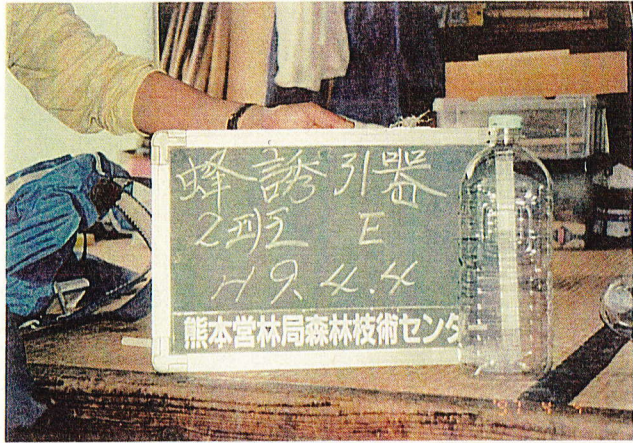 蜂誘引器
2班 E
H9.4.4
熊本営林局森林技術センター